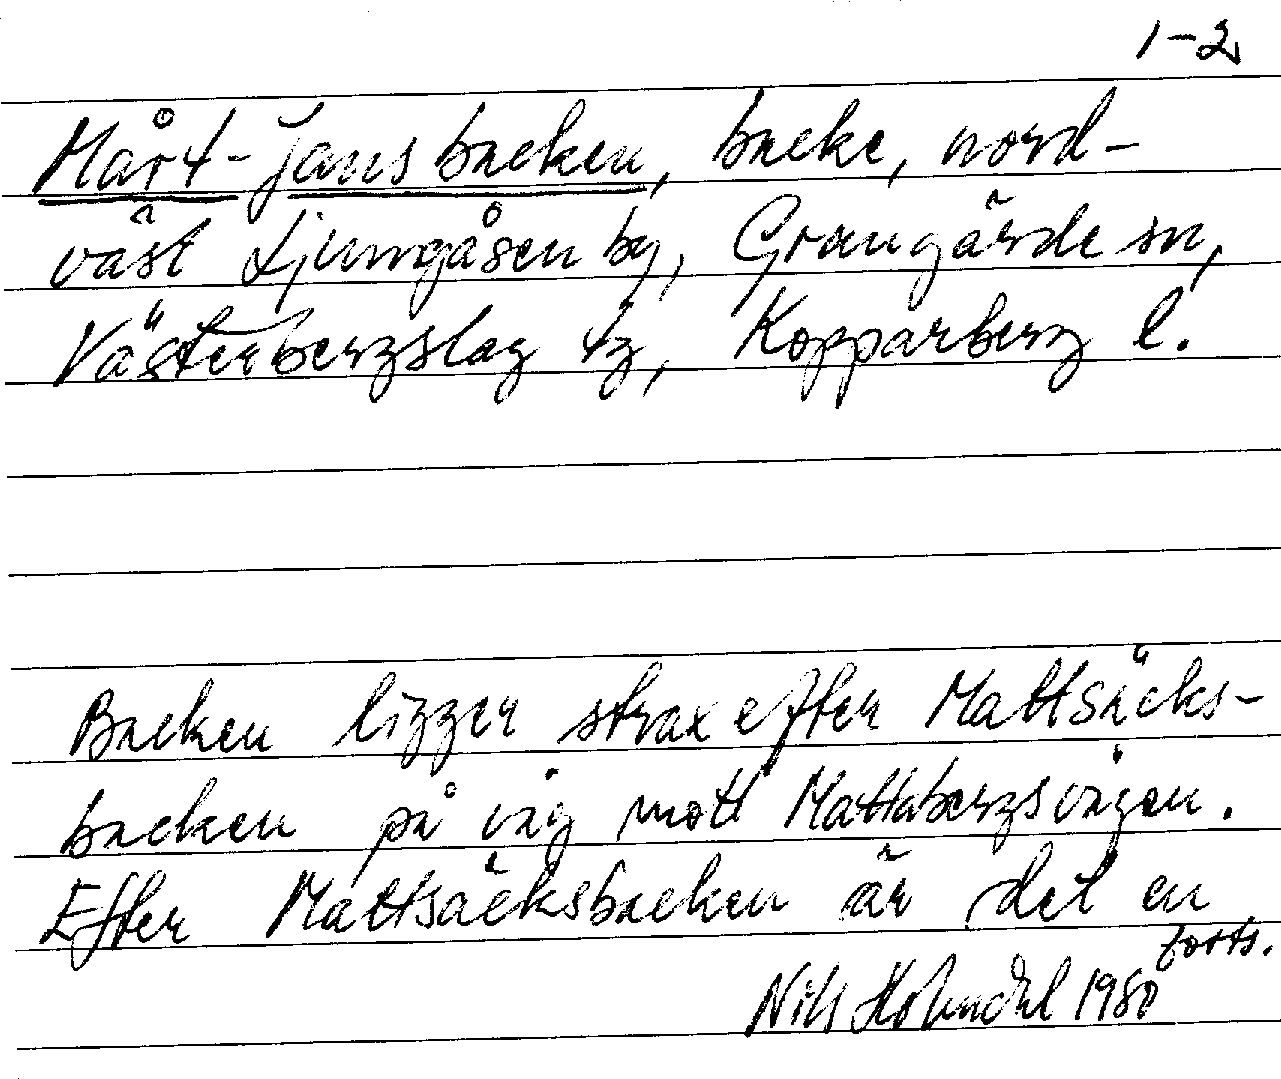 1-2
Mårt-jansbacken, backe, nord-
väst Ljungåsen by, Grangärde sn,
Västerbergslag tg, Kopparberg l.
Backen ligger strax efter Mattsäcks-
backen på väg mott Mattabergsvägen.
Efter Mattsäcksbacken är det en
forts.
Nils 1980